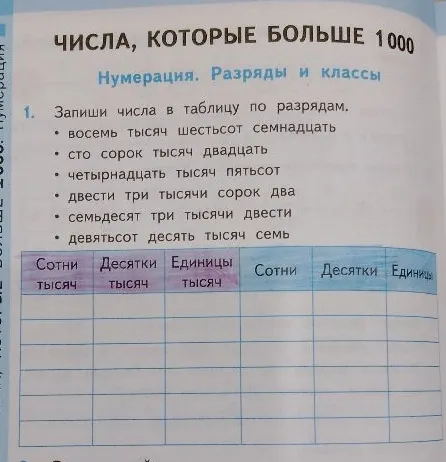 ЧИСЛА, КОТОРЫЕ БОЛЬШЕ 1000
Нумерация. Разряды и классы
1. Запиши числа в таблицу по разрядам.
• восемь тысяч шестьсот семнадцать
• сто сорок тысяч двадцать
• четырнадцать тысяч пятьсот
• двести три тысячи сорок два
• семьдесят три тысячи двести
• девятьсот десять тысяч семь
Сотни тысяч
Десятки тысяч
Единицы тысяч
Сотни
Десятки
Единицы